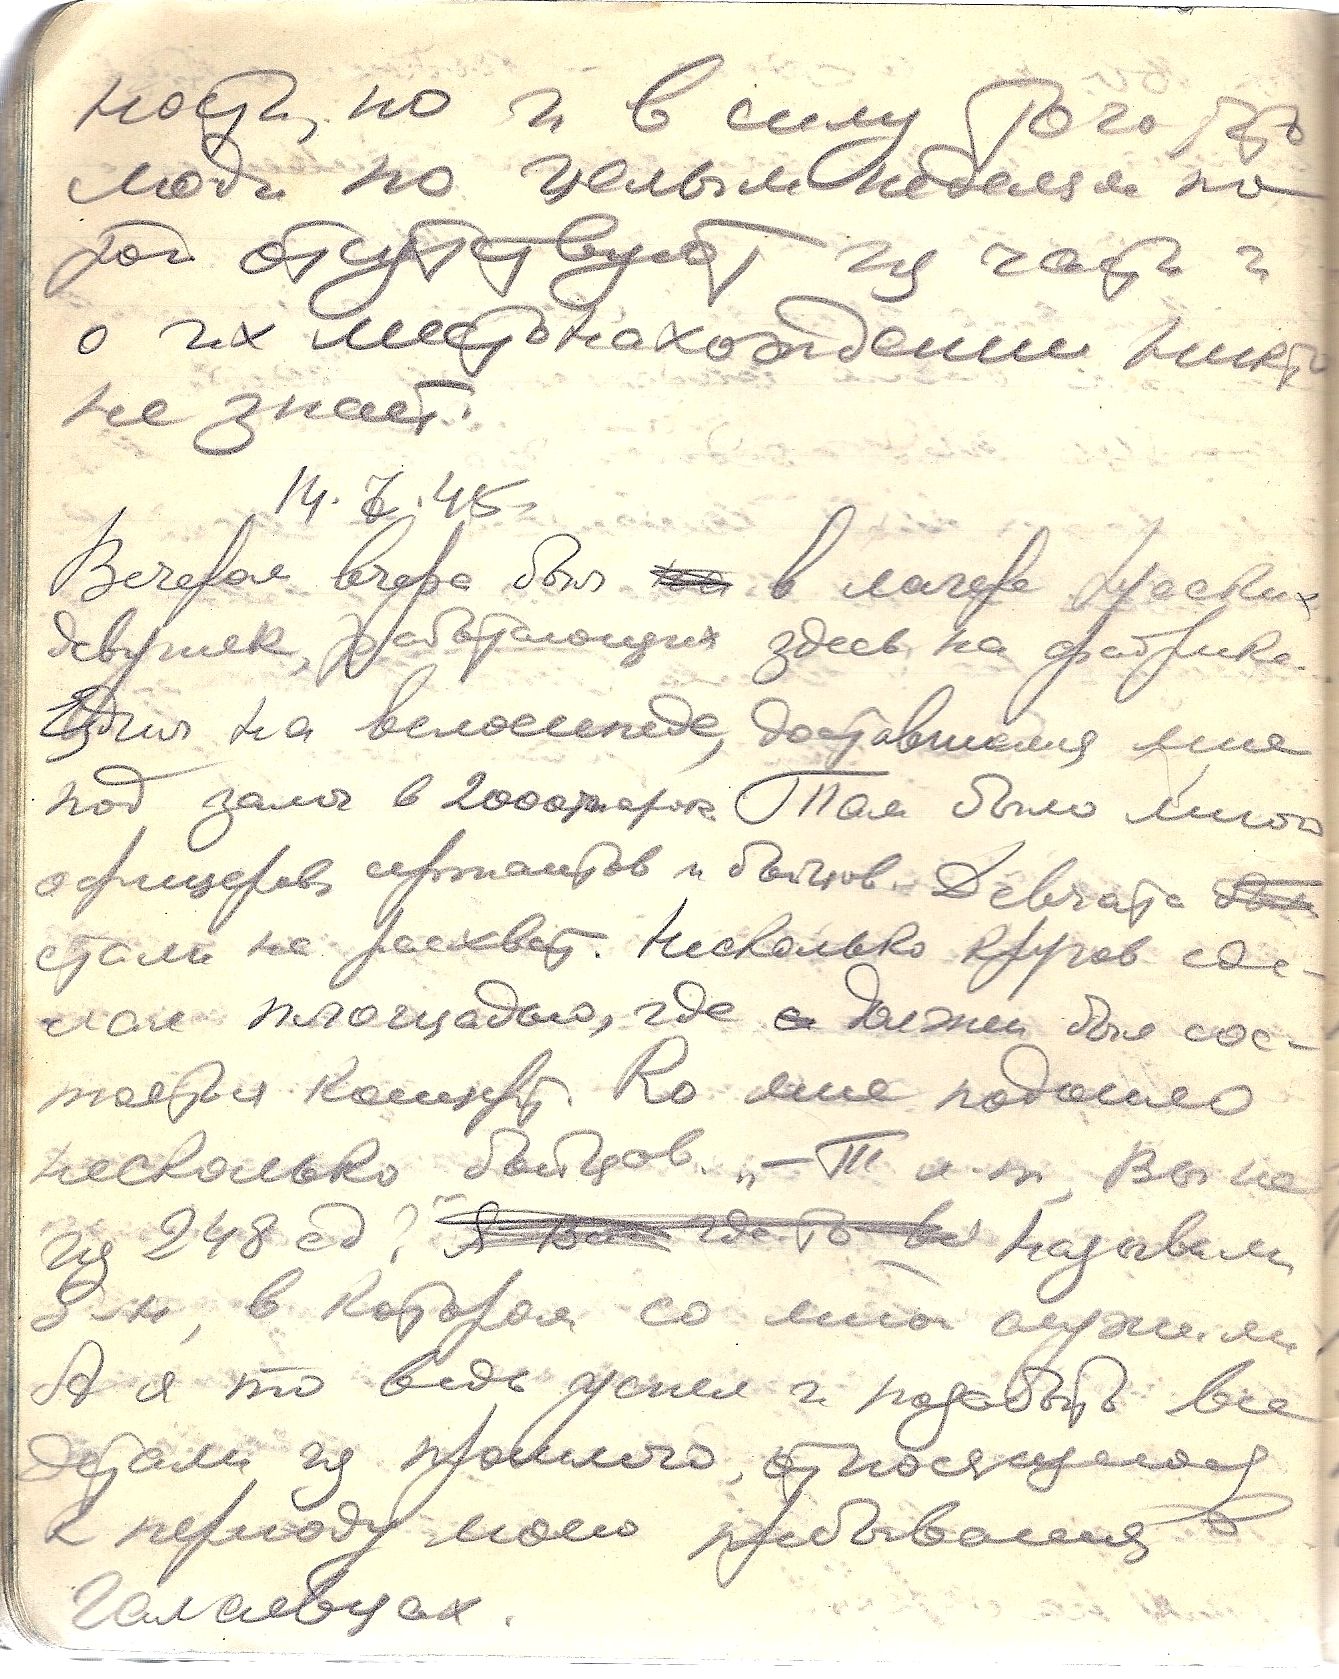 ность, но и в силу того, что
люди по целым неделям по-
рой отсутствуют из части и
о их местонахождении никто
не знает.
14.7.45г.
Вечером вчера был в лагере русских
девушек, работающих здесь на фабрике.
Ездил на велосипеде, доставшемся мне
под залог в 2000 марок. Там было много
офицеров, сержантов и бойцов. Девчата
стали на расхват. Несколько кругов сде-
лал площадью, где должен был сос-
тоятся концерт. Ко мне подошло
несколько бойцов. „– Т-щ л-т, Вы не
из 248 сд?" Называли
б-н, в котором со мной служили
А я то ведь успел и позабыть все
детали из прошлого, относящегося
к периоду моего пребывания в